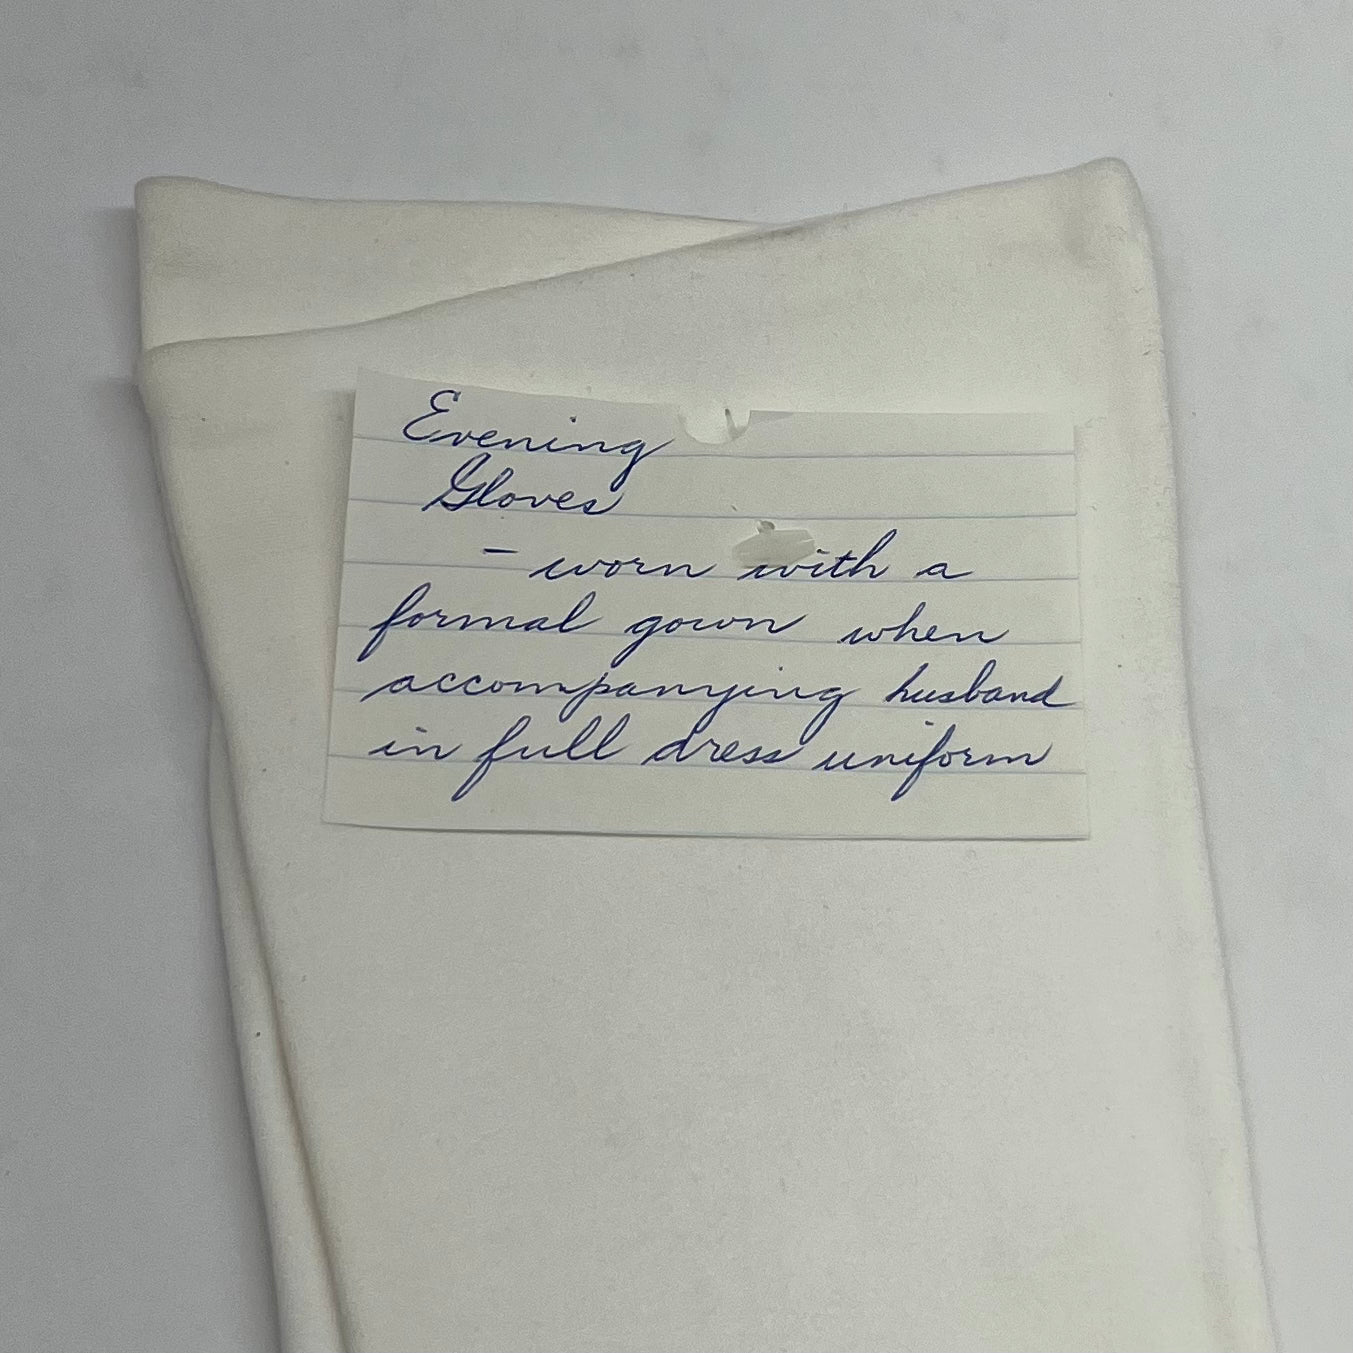 Evening
Gloves
- worn with a
formal gown when
accompanying husband
in full dress uniform